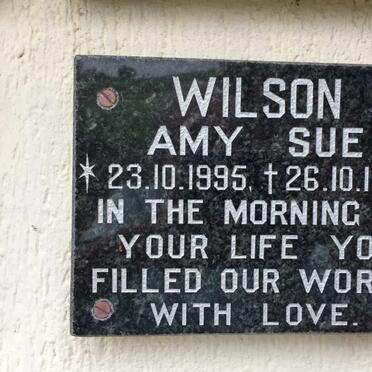 WILSON
AMY SUE
* 23.10.1995. † 26.10.1
IN THE MORNING
YOUR LIFE YO
FILLED OUR WOR
WITH LOVE.